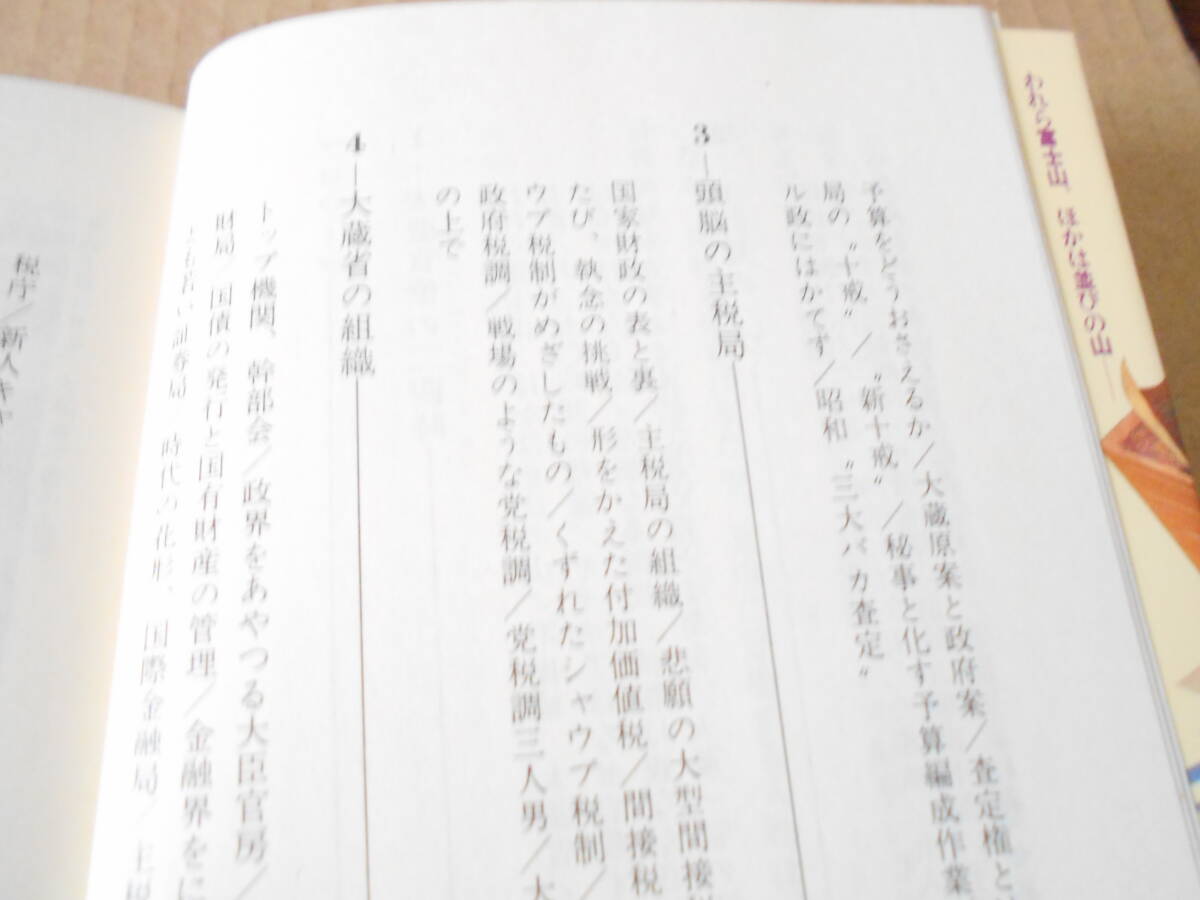 われら富士山、ほかは並びの山――
予算をどうおさえるか/大蔵原案と政府案/査定権と
局の〝十戒〟/〝新十戒〟/秘事と化す予算編成作業
ル政にはかてず/昭和〝三大バカ査定〟
3―頭脳の主税局
国家財政の表と裏/主税局の組織/悲願の大型間接
たび、執念の挑戦/形をかえた付加価値税/間接税
ウプ税制がめざしたもの/くずれたシャウプ税制/
政府税調/戦場のような党税調/党税調三人男/大
の上で
4―大蔵省の組織
トップ機関、幹部会/政界をあやつる大臣官房/
財局/国債の発行と国有財産の管理/金融界をに
い証券局 時代の花形、国際金融局/
税庁/新人キャ